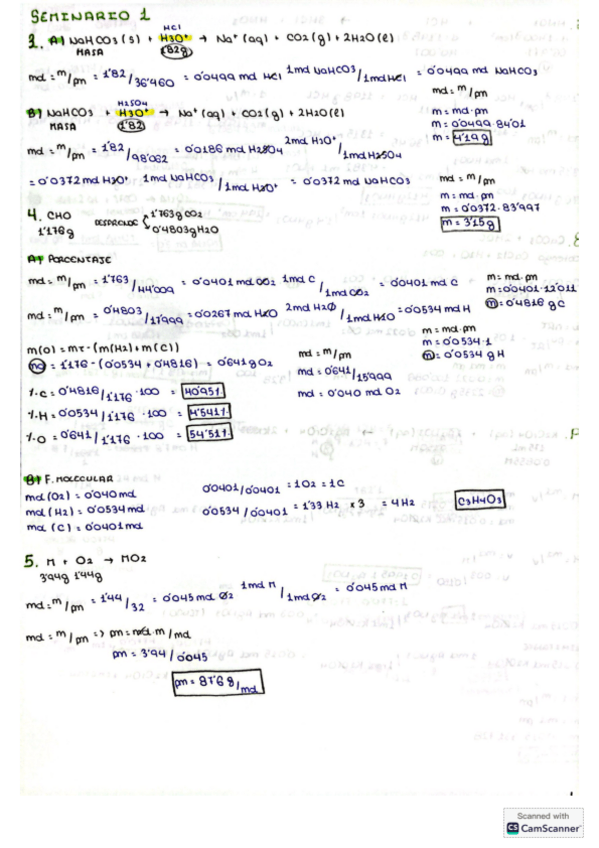 SEMINARIO 1
HCl
3. A) NaHCO3 (s) + H3O+ → Na+ (aq) + CO2 (g) + 2H2O (l)
MASA 1'82g
mol = m/pm = 1'82/36'460 = 0'0499 mol HCl 1mol NaHCO3/1mol HCl = 0'0499 mol NaHCO3
mol = m/pm
m = mol·pm
m = 0'0499·84'01
m = 4'19 g
H2SO4
B) NaHCO3 + H3O+ → Na+ (aq) + CO2 (g) + 2H2O (l)
MASA 1'82
mol = m/pm = 1'82/98'082 = 0'0186 mol H2SO4 2mol H3O+/1mol H2SO4
= 0'0372 mol H3O+ 1mol NaHCO3/1mol H3O+ = 0'0372 mol NaHCO3
mol = m/pm
m = mol·pm
m = 0'0372·83'997
m = 3'15g
4. CHO
1'176g
1'763g CO2
0'4803g H2O
A) PORCENTAJE
mol = m/pm = 1'763/44'009 = 0'0401 mol CO2 1mol C/1mol CO2 = 0'0401 mol C
m = mol·pm
m = 0'0401·12'011
m = 0'4816 g C
mol = m/pm = 0'4803/17'999 = 0'0267 mol H2O 2mol H2O/1mol H2O = 0'0534 mol H
m = mol·pm
m = 0'0534·1
m = 0'0534 g H
m(O) = mT - (m(H2) + m(C))
mO = 1'176 - (0'0534 + 0'4816) = 0'641g O2
mol = m/pm
mol = 0'641/15'999
mol = 0'040 mol O2
% C = 0'4816/1'176 · 100 = 40'95%
% H = 0'0534/1'176 · 100 = 4'541%
% O = 0'641/1'176 · 100 = 54'51%
B) F. MOLECULAR
mol (O2) = 0'040 mol
mol (H2) = 0'0534 mol
mol (C) = 0'0401 mol
0'0401/0'0401 = 1O2 = 1C
0'0534/0'0401 = 1'33 H2 x 3 = 4 H2
C3H4O3
5. M + O2 → MO2
3'94g 1'44g
mol = m/pm = 1'44/32 = 0'045 mol O2 1mol M/1mol O2 = 0'045 mol M
mol = m/pm => pm = m/mol
pm = 3'94/0'045
pm = 87'6 g/mol
Scanned with
CS CamScanner